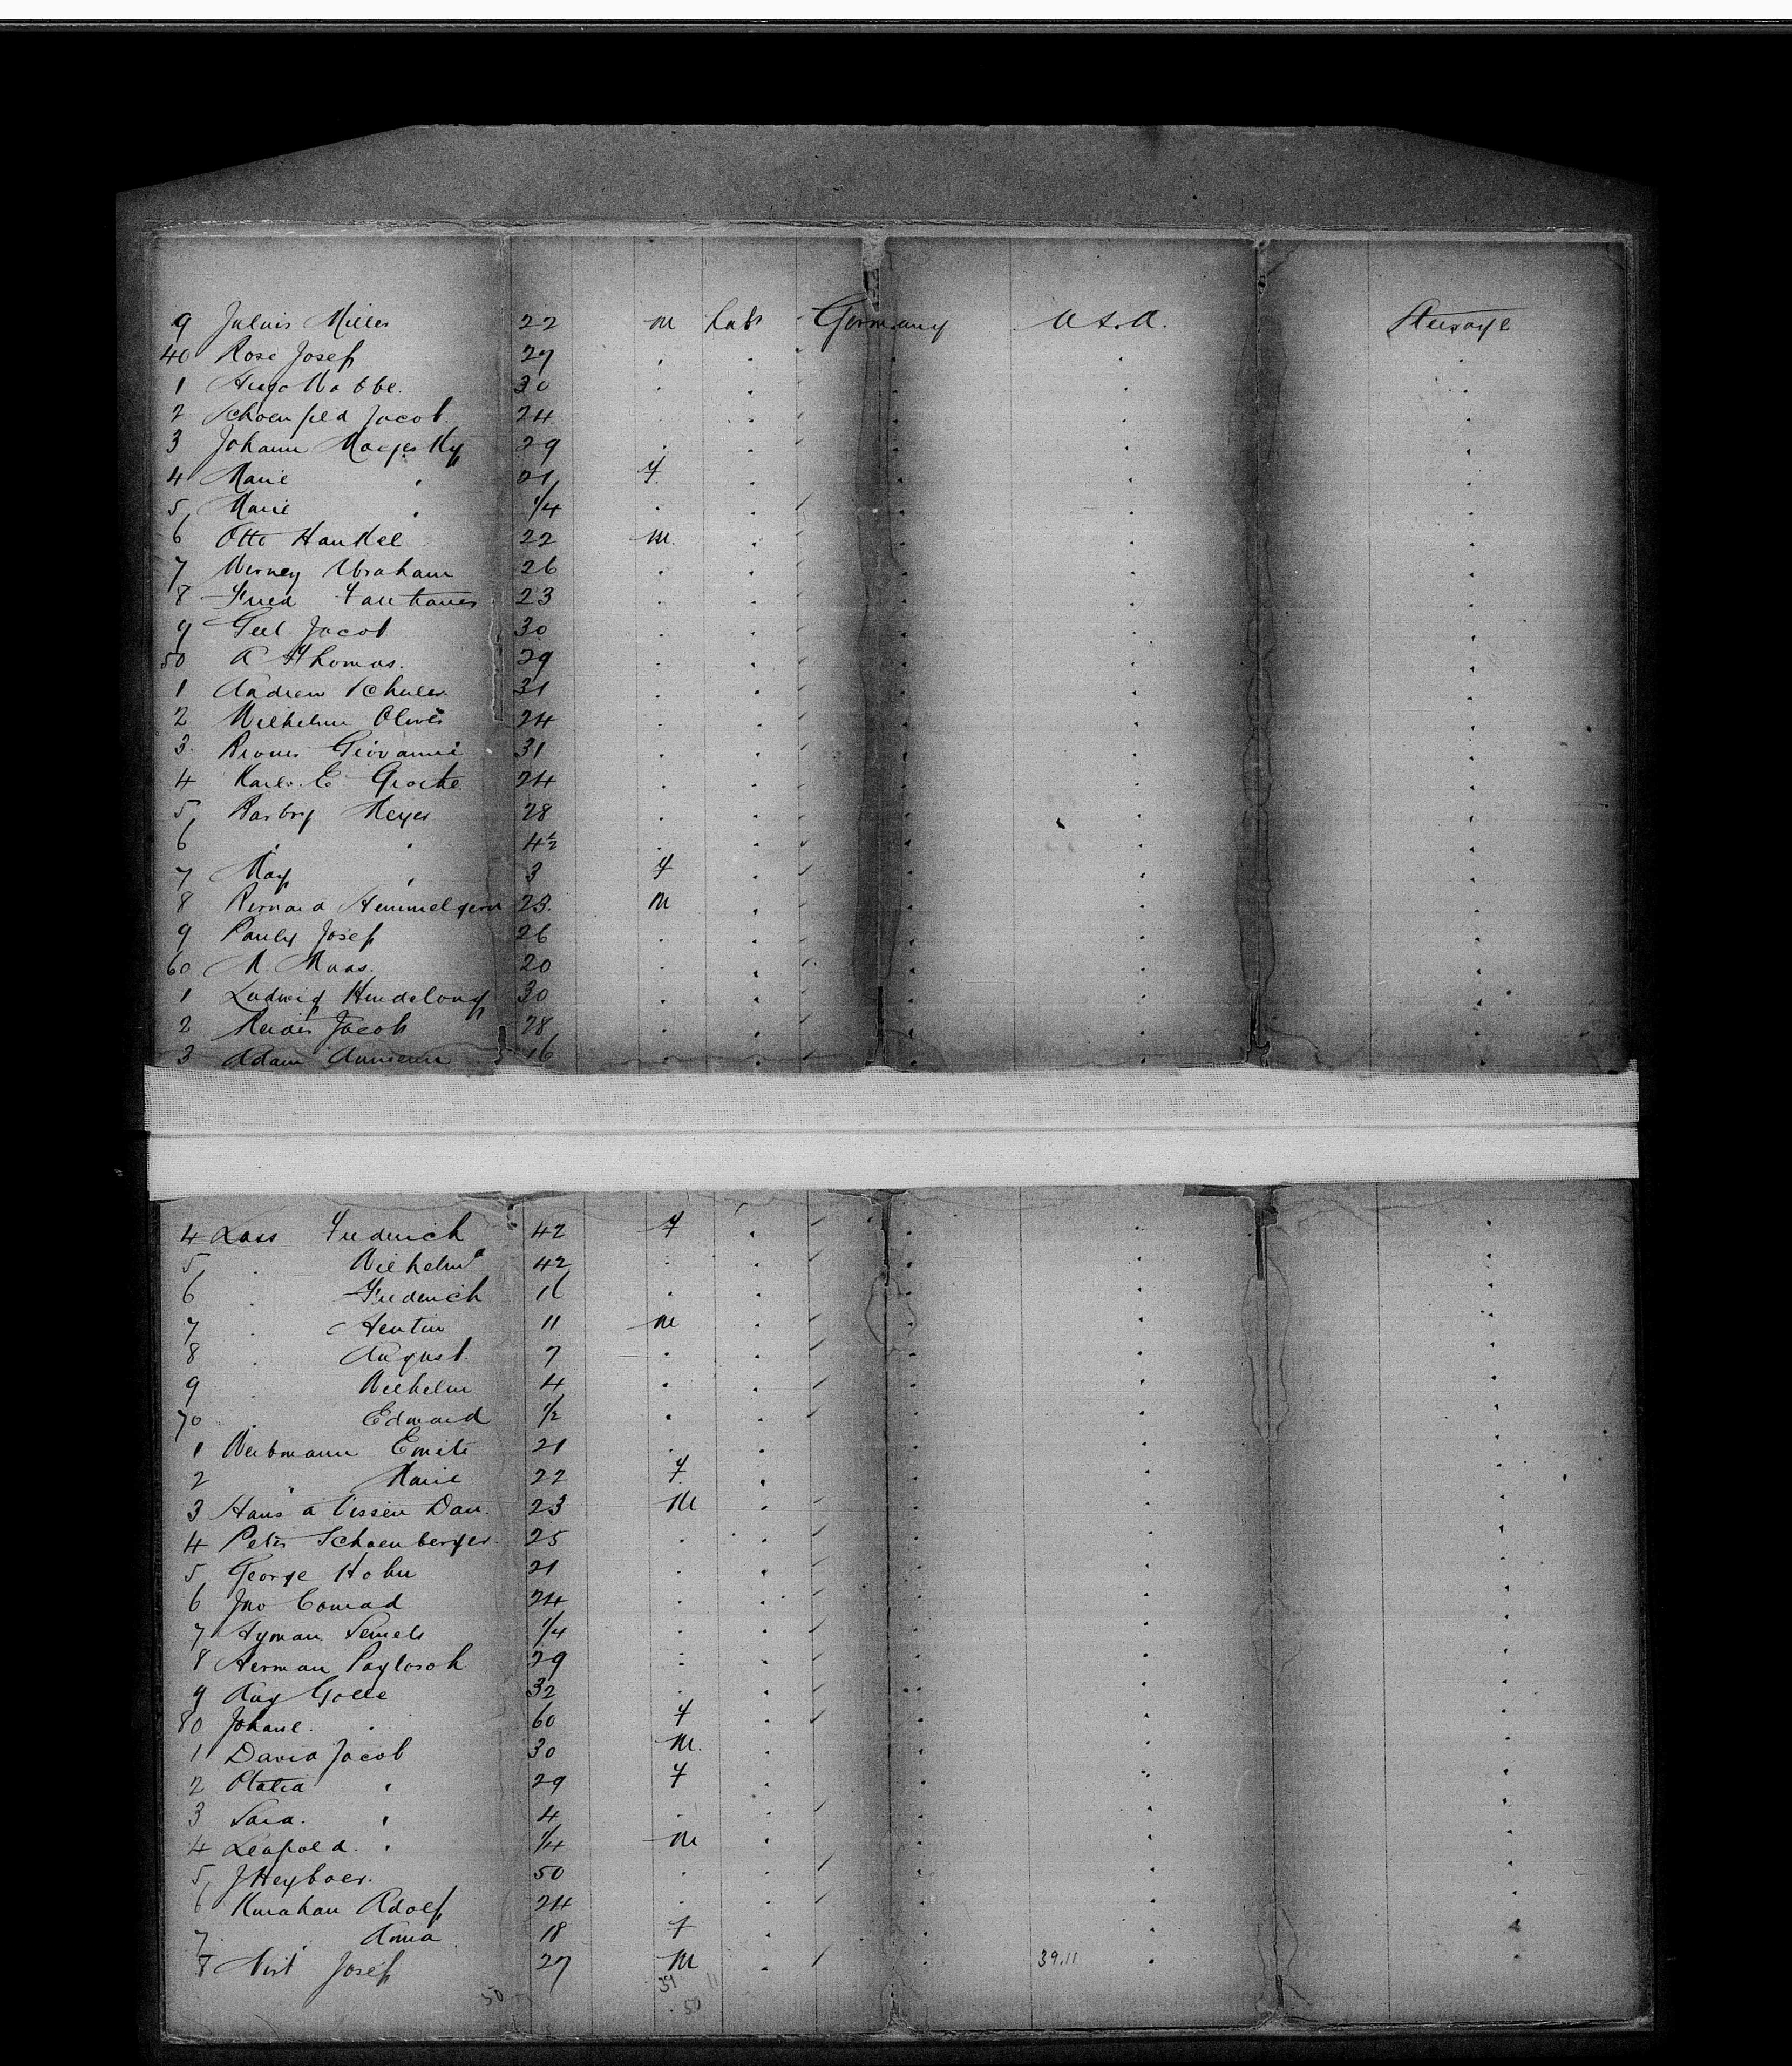 9 Julius Miller 22 m Lab Germany U.S.A. Steerage
40 Rose Josef 27
1 Hugo 30
2 Schoenfeld Jacob 24
3 Johann 29
4 Marie 21 f
5 Marie 1/4
6 Otto Hankel 22 m
7 Abraham 26
8 Fried 23
9 Jacob 30
50 A Thomas. 29
1 Andrew Schuler 31
2 Wilhelm 24
3 Giovanni 31
4 Karl. E 24
5 Meyer 28
6 " " 4 1/2
7 May 3 f
8 Bernard Himmelgern 23. m
9 Pauly Josef 26
60 M. Maas. 20
1 Ludwig Hindelong 30
2 Jacob 28
3 Adam 16
4 Lass Friedrich 42 f
5 Wilhelm 42
6 Friedrich 16
7 11 m
8 August 7
9 Wilhelm 4
70 Edward 1/2
1 Emile 21
2 " Marie 22 f
3 Hans a 23 M
4 Peter Schoenberger 25
5 George Hohn 21
6 Jno Conrad 24
7 Hyman 1/4
8 Herman 29
9 Aug Golle 32
80 Johane 60 f
1 David Jacob 30 M.
2 29 f
3 Sara. 4
4 Leopold. 1/4 m
5 J Heyboer. 50
6 Adolf 24
7 Anna 18 f
8 Josef 27 M 39.11
50 39 11
50